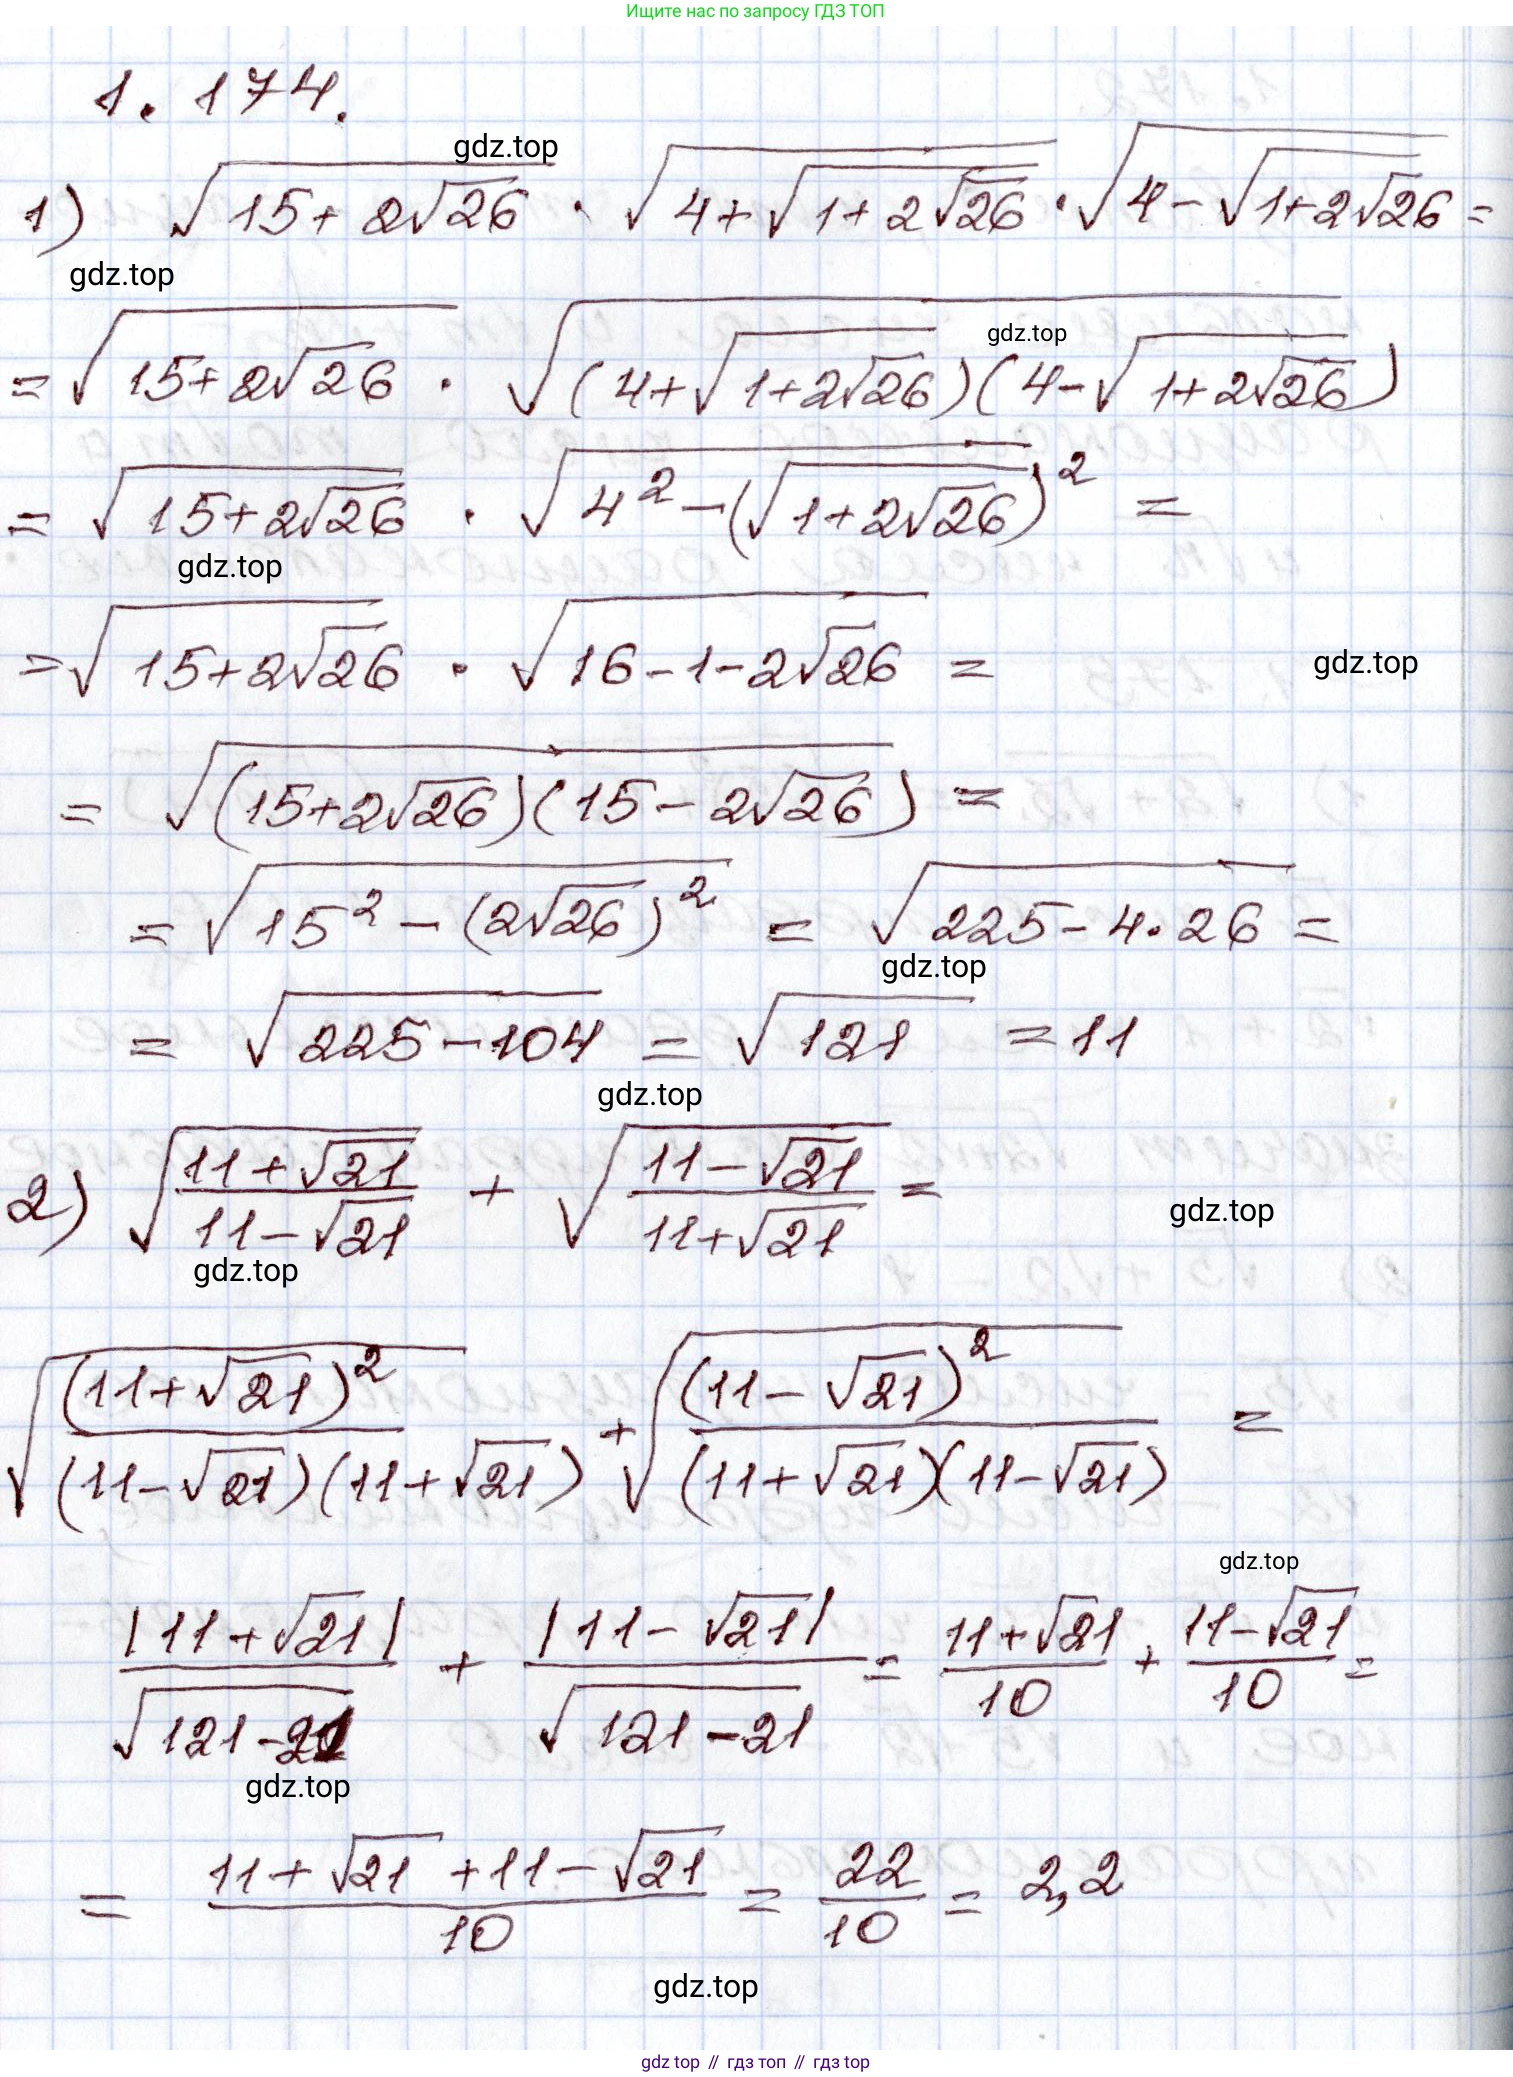 Ищите нас по запросу ГДЗ ТОП
1.174.
gdz.top
1) √(15+2√26) · √(4+√(1+2√26)) · √(4-√(1+2√26)) =
gdz.top
gdz.top
= √(15+2√26) · √((4+√(1+2√26))(4-√(1+2√26)))
= √(15+2√26) · √(4²-(√(1+2√26))²) =
gdz.top
= √(15+2√26) · √(16-1-2√26) =
gdz.top
= √((15+2√26)(15-2√26)) =
= √(15²-(2√26)²) = √(225-4·26) =
gdz.top
= √(225-104) = √121 = 11
gdz.top
2) √((11+√21)/(11-√21)) + √((11-√21)/(11+√21)) =
gdz.top
gdz.top
√((11+√21)²/((11-√21)(11+√21))) + √((11-√21)²/((11+√21)(11-√21))) =
gdz.top
|11+√21|/√(121-21) + |11-√21|/√(121-21) = (11+√21)/10 + (11-√21)/10 =
gdz.top
= (11+√21+11-√21)/10 = 22/10 = 2,2
gdz.top
gdz top // гдз топ // gdz top